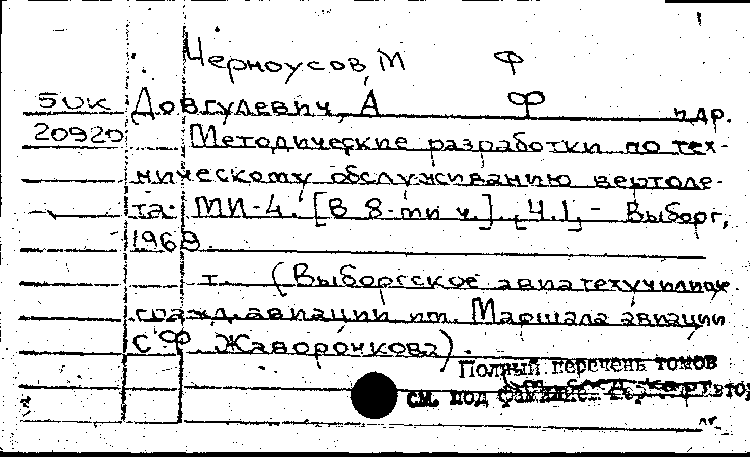 Черноусов, М Ф
БИК Довгулевич, А Ф и др.
20920 Методические разработки по тех-
ническому обслуживанию вертоле-
та МИ-4. [В 8-ти ч.] Ч.1, - Выборг,
1969.
т. (Выборгское авиатехучилище
гражд. авиации им. Маршала авиации
С Ф Жаворонкова).
Полный перечень томов
см. под